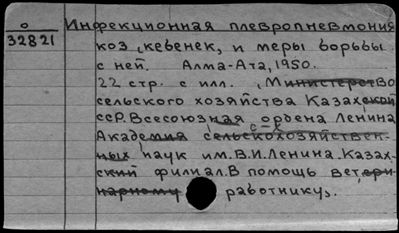 о
32821
Инфекционная плевропневмония
коз, кебенек, и меры борьбы
с ней. Алма-Ата, 1950.
22 стр. с илл. (Министерство
сельского хозяйства Казахской
ССР. Всесоюзная ордена Ленина
с-х
Академия сельскохозяйствен-
ных наук им. В.И. Ленина. Казах-
ский филиал. В помощь ветери-
нарному работнику).